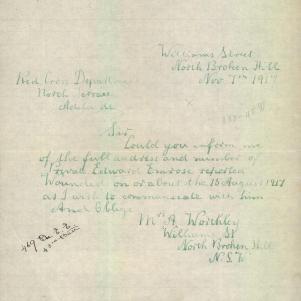 Williams Street
North Broken Hill
Nov 7th 1917
Red Cross Department
North Terrace
Adelaide
Sir
Could you inform me
of the full address and number of
Private Edward Emrose reported
Wounded on or about the 15 August 1917
as I wish to communicate with him
And Oblige
Mrs A Worthley
William St
North Broken Hill
N.S.W